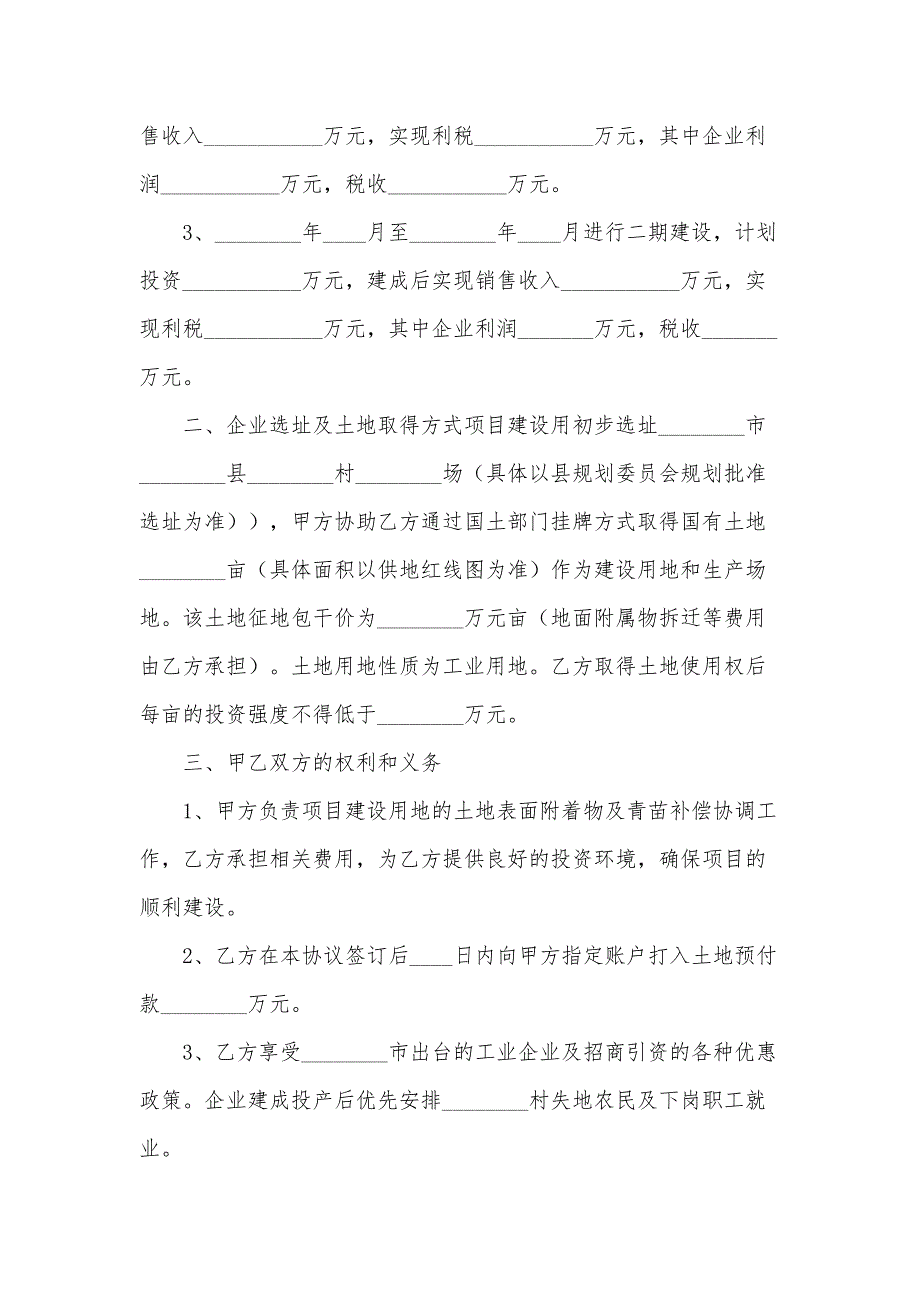 售收入___________万元，实现利税___________万元，其中企业利
润___________万元，税收___________万元。
3、________年____月至________年____月进行二期建设，计划
投资___________万元，建成后实现销售收入___________万元，实
现利税___________万元，其中企业利润_______万元，税收_______
万元。
二、企业选址及土地取得方式项目建设用初步选址________市
________县________村________场（具体以县规划委员会规划批准
选址为准）），甲方协助乙方通过国土部门挂牌方式取得国有土地
________亩（具体面积以供地红线图为准）作为建设用地和生产场
地。该土地征地包干价为________万元亩（地面附属物拆迁等费用
由乙方承担）。土地用地性质为工业用地。乙方取得土地使用权后
每亩的投资强度不得低于________万元。
三、甲乙双方的权利和义务
1、甲方负责项目建设用地的土地表面附着物及青苗补偿协调工
作，乙方承担相关费用，为乙方提供良好的投资环境，确保项目的
顺利建设。
2、乙方在本协议签订后____日内向甲方指定账户打入土地预付
款________万元。
3、乙方享受________市出台的工业企业及招商引资的各种优惠
政策。企业建成投产后优先安排________村失地农民及下岗职工就
业。